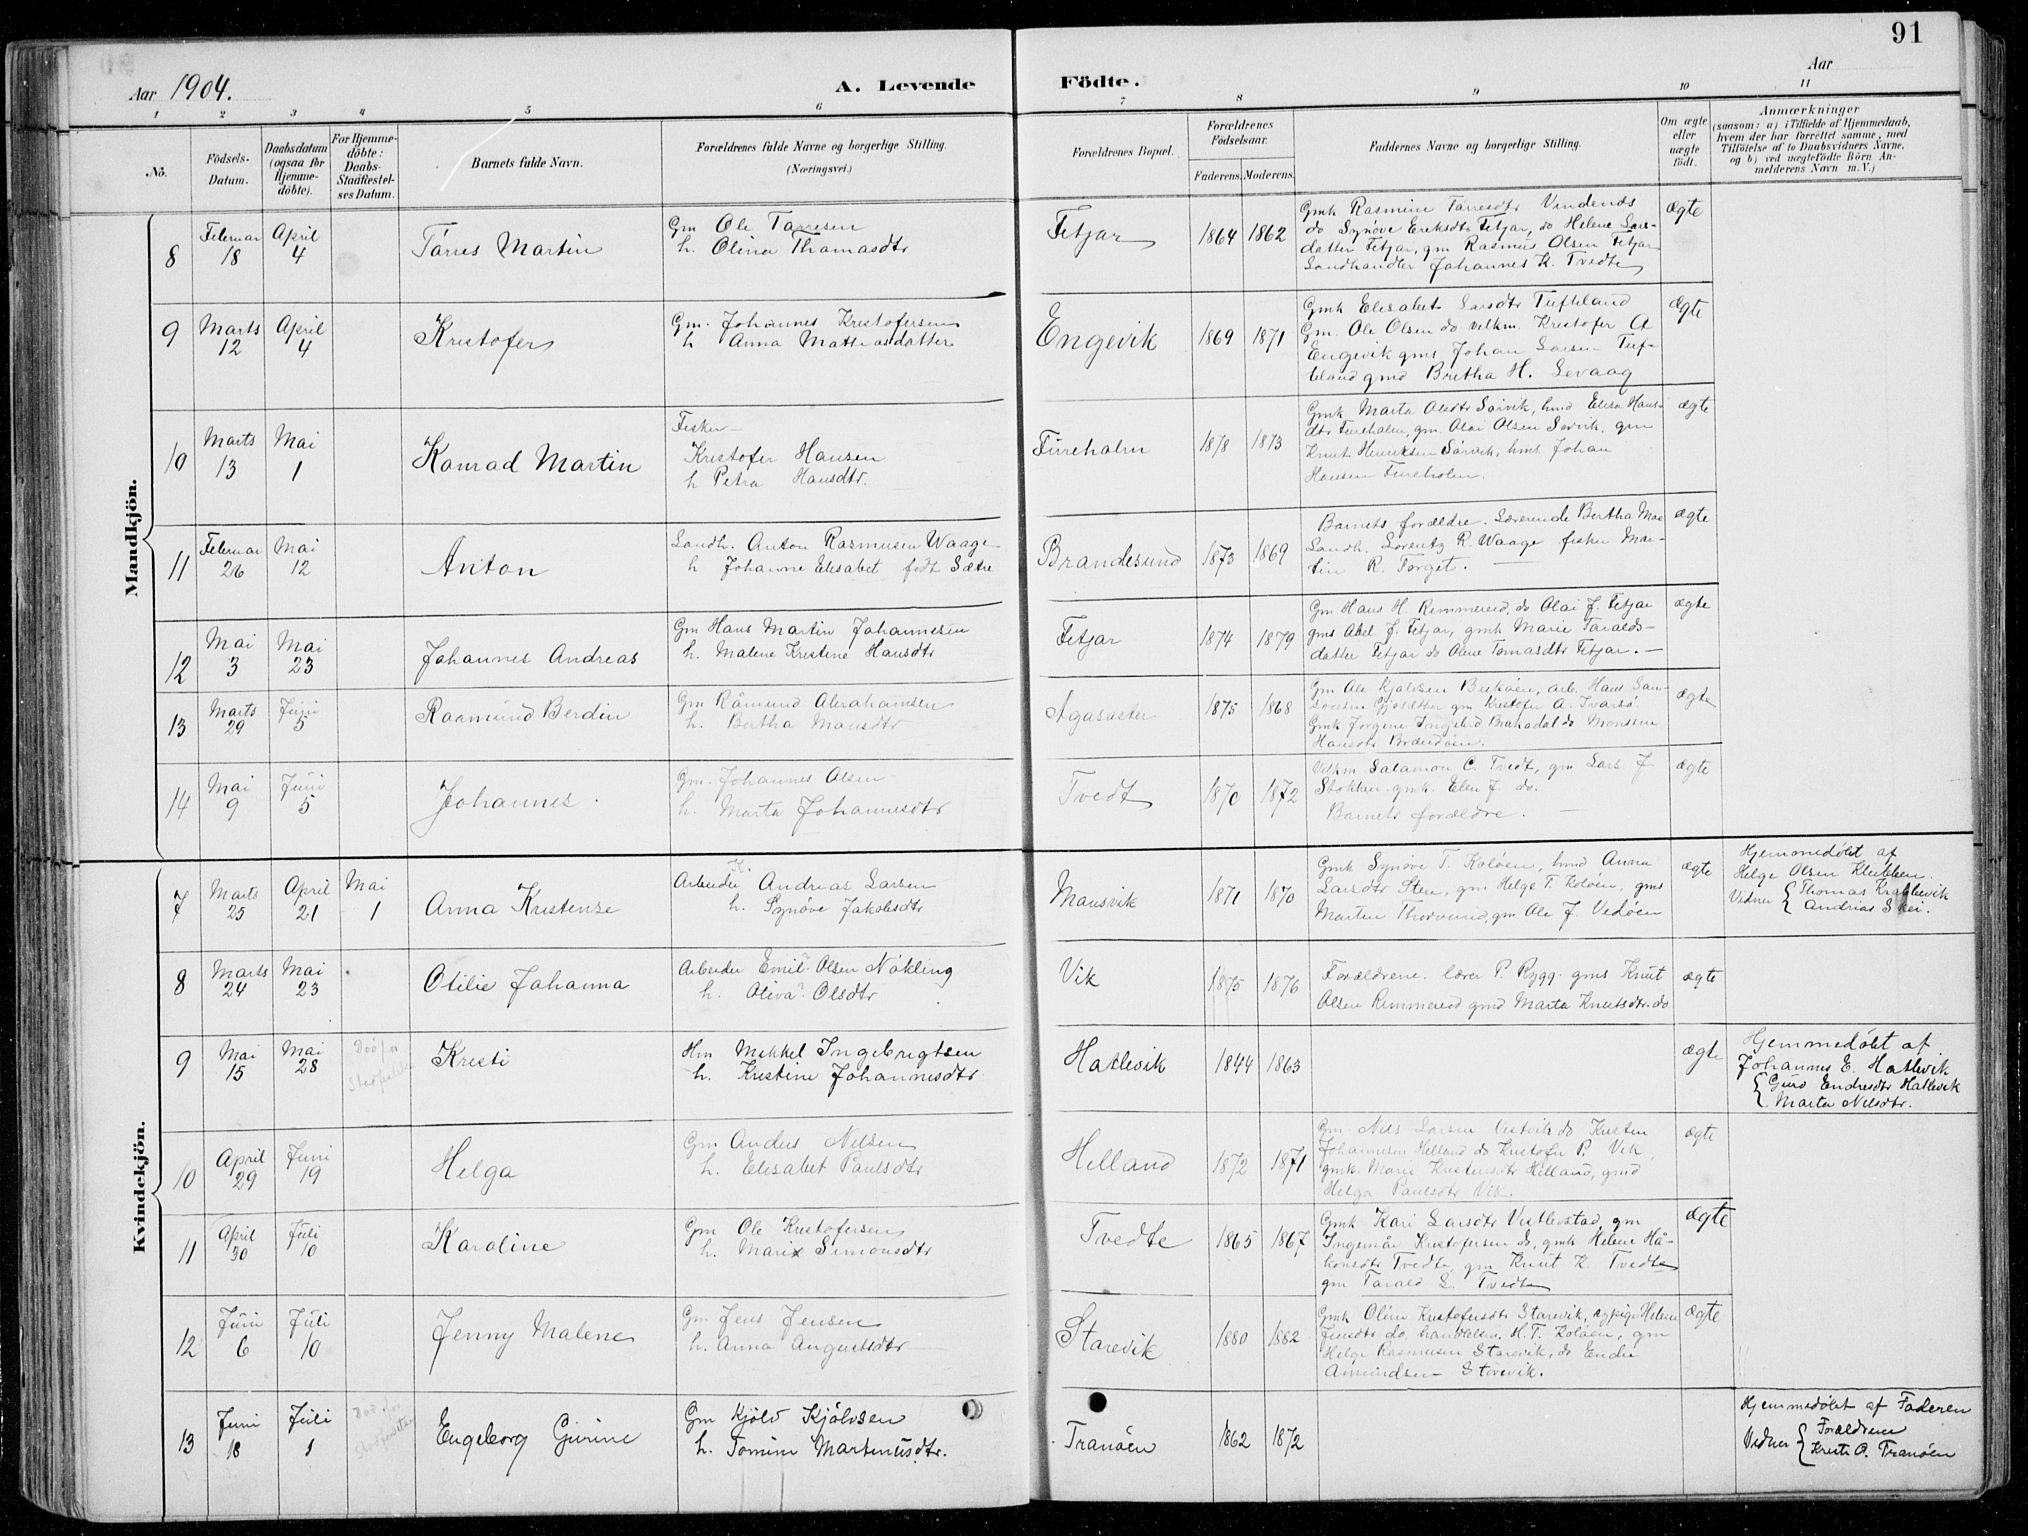 91
Aar 1904.
A. Levende Födte.
Aar
1 2 3 4 5 6 7 8 9 10 11
No.
Födsels-Datum.
Daabsdatum (ogsaa for Hjemme-döbte).
For Hjemme-döbte: Daabs-Stadfæstel-ses Datum.
Barnets fulde Navn.
Forældrenes fulde Navne og borgerlige Stilling.
(Næringsvei.)
Forældrenes Bopæl.
Forældrenes Födselsaar.
Faderens. Moderens.
Faddernes Navne og borgerlige Stilling.
Om ægte eller uægte födt.
Anmærkninger
(saasom: a) i Tilfælde af Hjemmedaab, hvem der har forrettet samme, med Tilföielse af to Daabsvidners Navne, og b) ved uægtefödte Börn An-melderens Navn m. V.)
Mandkjön.
8 Februar 18 April 4 Tørres Martin
Gm Ole Tørresen
h. Olina Thomasdtr
Fitjar 1864 1862
Gmk Rasmine Tørresdtr Vindenes
do Synøve Eriksdtr Fitjar, do Helene Lars-
datter Fitjar, gm Rasmus Olsen Fitjar
Landhandler Johannes K. Tvedte
ægte
9 Marts 12 April 4 Kristofer
Gm. Johannes Kristofersen
h Anna Mattiasdatter
Engevik 1869 1871
Gmk Elisabet Larsdtr Tufteland
Gm. Ole Olsen do velkm. Kristofer A
Engevik gms Johan Larsen Tuf-
teland gmd Bertha H. Levaag
ægte
10 Marts 13 Mai 1 Konrad Martin
Fisker
Kristofer Hansen
h Petra Hansdtr.
Fureholm 1878 1873
Gmk Marta Olsdtr Sørvik, hmd Elisa Hans-
dtr Fureholm, gm. Olai Olsen Sørvik, gm
Knut Henriksen Sørvik, hms. Johan
Hansen Fureholm.
ægte
11 Februar 26 Mai 12 Anton
Landh. Anton Rasmusen Waage
h Johanne Elisabet født Sætre
Brandesund 1873 1869
Barnets forældre. Lærerinde Bertha Moe
Landh. Lorentz R. Waage fisker Mar-
tin R. Torget.
ægte
12 Mai 3 Mai 23 Johannes Andreas
Gm Hans Martin Johannesen
h. Malene Kristine Hansdtr
Fitjar 1874 1879
Gm Hans H. Rimmereid, do Olai J. Fitjar
gms Abel J. Fitjar, gmk Marie Taralds-
datter Fitjar do Oline Tomasdtr Fitjar.
ægte
13 Marts 29 Juni 5 Raamund Berdin
Gm Råmund Abrahamsen
h. Bertha Monsdtr
Agasøster 1875 1868
Gm Ole Kjølvsen Bukøen, arb. Hans Sam-
gm Kristofer A. Ivarsø.
Gmk Jørgine Ingebrd do Monsine
Hansdtr
ægte
14 Mai 9 Juni 5 Johannes.
Gm. Johannes Olsen
h. Marta Johannesdtr
Tvedt 1870 1872
Velkm Salamon C. Tvedt, gm Lars J.
Stokken gmk. Elen J. do.
Barnets forældre.
ægte
Kvindekjön.
7 Marts 25 April 21 Mai 1 Anna Kristense
K.
Arbeider Andreas Larsen
h. Synøve Jakobsdtr
Mausvik 1871 1870
Gmk Synøve T. Koløen, hmd Anna
Larsdtr Sten, gm Helge T. Koløen, gms
Marten Thorvund, gm Ole J. Vedøen
ægte
Hjemmedøbt af
Helge Olsen Klubben.
Vidner { Thomas Krakkevik
Andrias Skei.
8 Marts 24 Mai 23 Otilie Johanna
Arbeider Emil Olsen Nøkling
h. Oliva Olsdtr
Vik 1875 1876
Forældrene. lærer P. Rygg. gms Knut
Olsen Rimmereid gmd Marta Knutsdtr. do
ægte
9 Mai 15 Mai 28 Død før Kristi
Hm Mikkel Ingebrigtsen
h. Kristine Johannesdtr
Hatlevik 1844 1863
ægte
Hjemmedøbt af
Johannes E. Hatlevik
{ Guro Endresdtr Hatlevik
Marta Nilsdtr.
10 April 29 Juni 19 Helga
Gm Anders Nilsen
h. Elisabet Paulsdtr
Helland 1872 1871
Gm. Nils Larsen Vestvik do Kristen
Johannesen Helland do Kristofer P. Vik,
gmk. Marie Kristensdtr Helland, gmd
Helga Paulsdtr Vik.
ægte
11 April 30 Juli 10 Karoline
Gm Ole Kristofersen
h. Marie Simonsdtr
Tvedte 1865 1867
Gmk Kari Larsdtr Vestbøstad, gm
Ingemår Kristofersen do, gmk Helene Hå-
konsdtr Tvedte, gm Knut K. Tvedte
gm Tarald L. Tvedte
ægte
12 Juni 6 Juli 10 Jenny Malene
Gm Jens Jensen
h. Anna Augustsdtr
Starevik 1880 1882
Gmk Oline Kristofersdtr Starevik, pige Helene
Jensdtr do handelsm. H. T. Koløen, gm
Helge Rasmusen Starevik, do Endre
Amundsen Storevik.
ægte
13 Juni 18 Juli 1 Død før Engeborg Gurine
Gm Kjølv Kjølvsen
h. Tomine Martinusdtr.
Tranøen 1862 1872
Hjemmedøbt af Faderen
Vidner { Forældrene
Kristi O. Tranøen